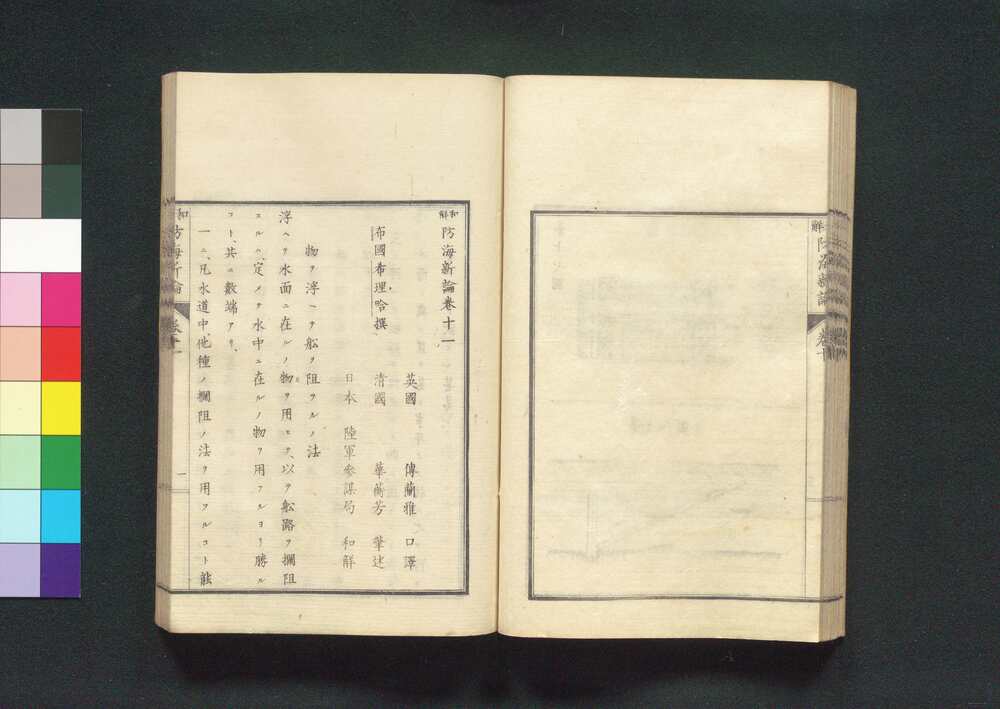 和解防海新論卷十一
英國 傅蘭雅 口譯
布國希理哈撰 清國 華蘅芳 筆述
日本 陸軍參謀局 和解
物ヲ浮ヘテ船ヲ阻ムルノ法
浮ヘテ水面ニ在ルノ物ヲ用ヒテ、以テ船路ヲ攔阻
スルハ、定メテ水中ニ在ルノ物ヲ用フルヨリ勝ル
コト、其ニ數端アリ、
一ニ、凡水道中、他種ノ攔阻ノ法ヲ用フルコト能
和解防海新論
卷十一
一
解防海新論
卷十